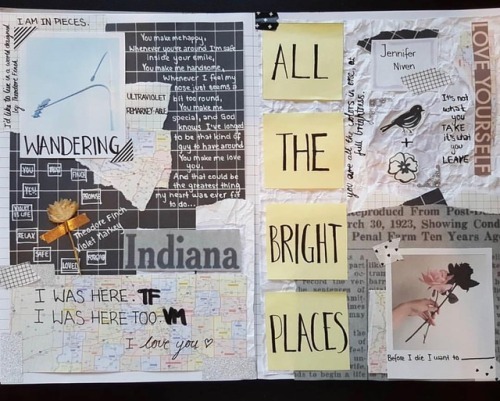 I AM IN PIECES.
I'd like to live in a world designed
by Theodore Finch.
WANDERING
You make me happy,
Whenever you're around I'm safe
inside your smile,
You make me handsome,
Whenever I feel my
nose just seems a
bit too round,
You make me
special, and God
knows I've longed
to be that kind of
guy to have around
You make me love
you,
And that could be
the greatest thing
my heart was ever fit
to do...
ULTRAVIOLET
REMARKEY-ABLE
YOU
YES!
PROMISE
VIOLET
VS LIFE
RELAX
SAFE
LOVED
FORGIVE
Theodore Finch
Violet Markey
Indiana
I WAS HERE. TF
I WAS HERE TOO. VM
I love you
ALL
THE
BRIGHT
PLACES
you are all the colors in one, at
full brightness.
Jennifer
Niven
LOVE YOURSELF
It's not
what
you
TAKE
it's what
you
LEAVE
+
Reproduced From Post-
March 30, 1923, Showing Cond
Penal Farm Ten Years Ag
Before I die I want to